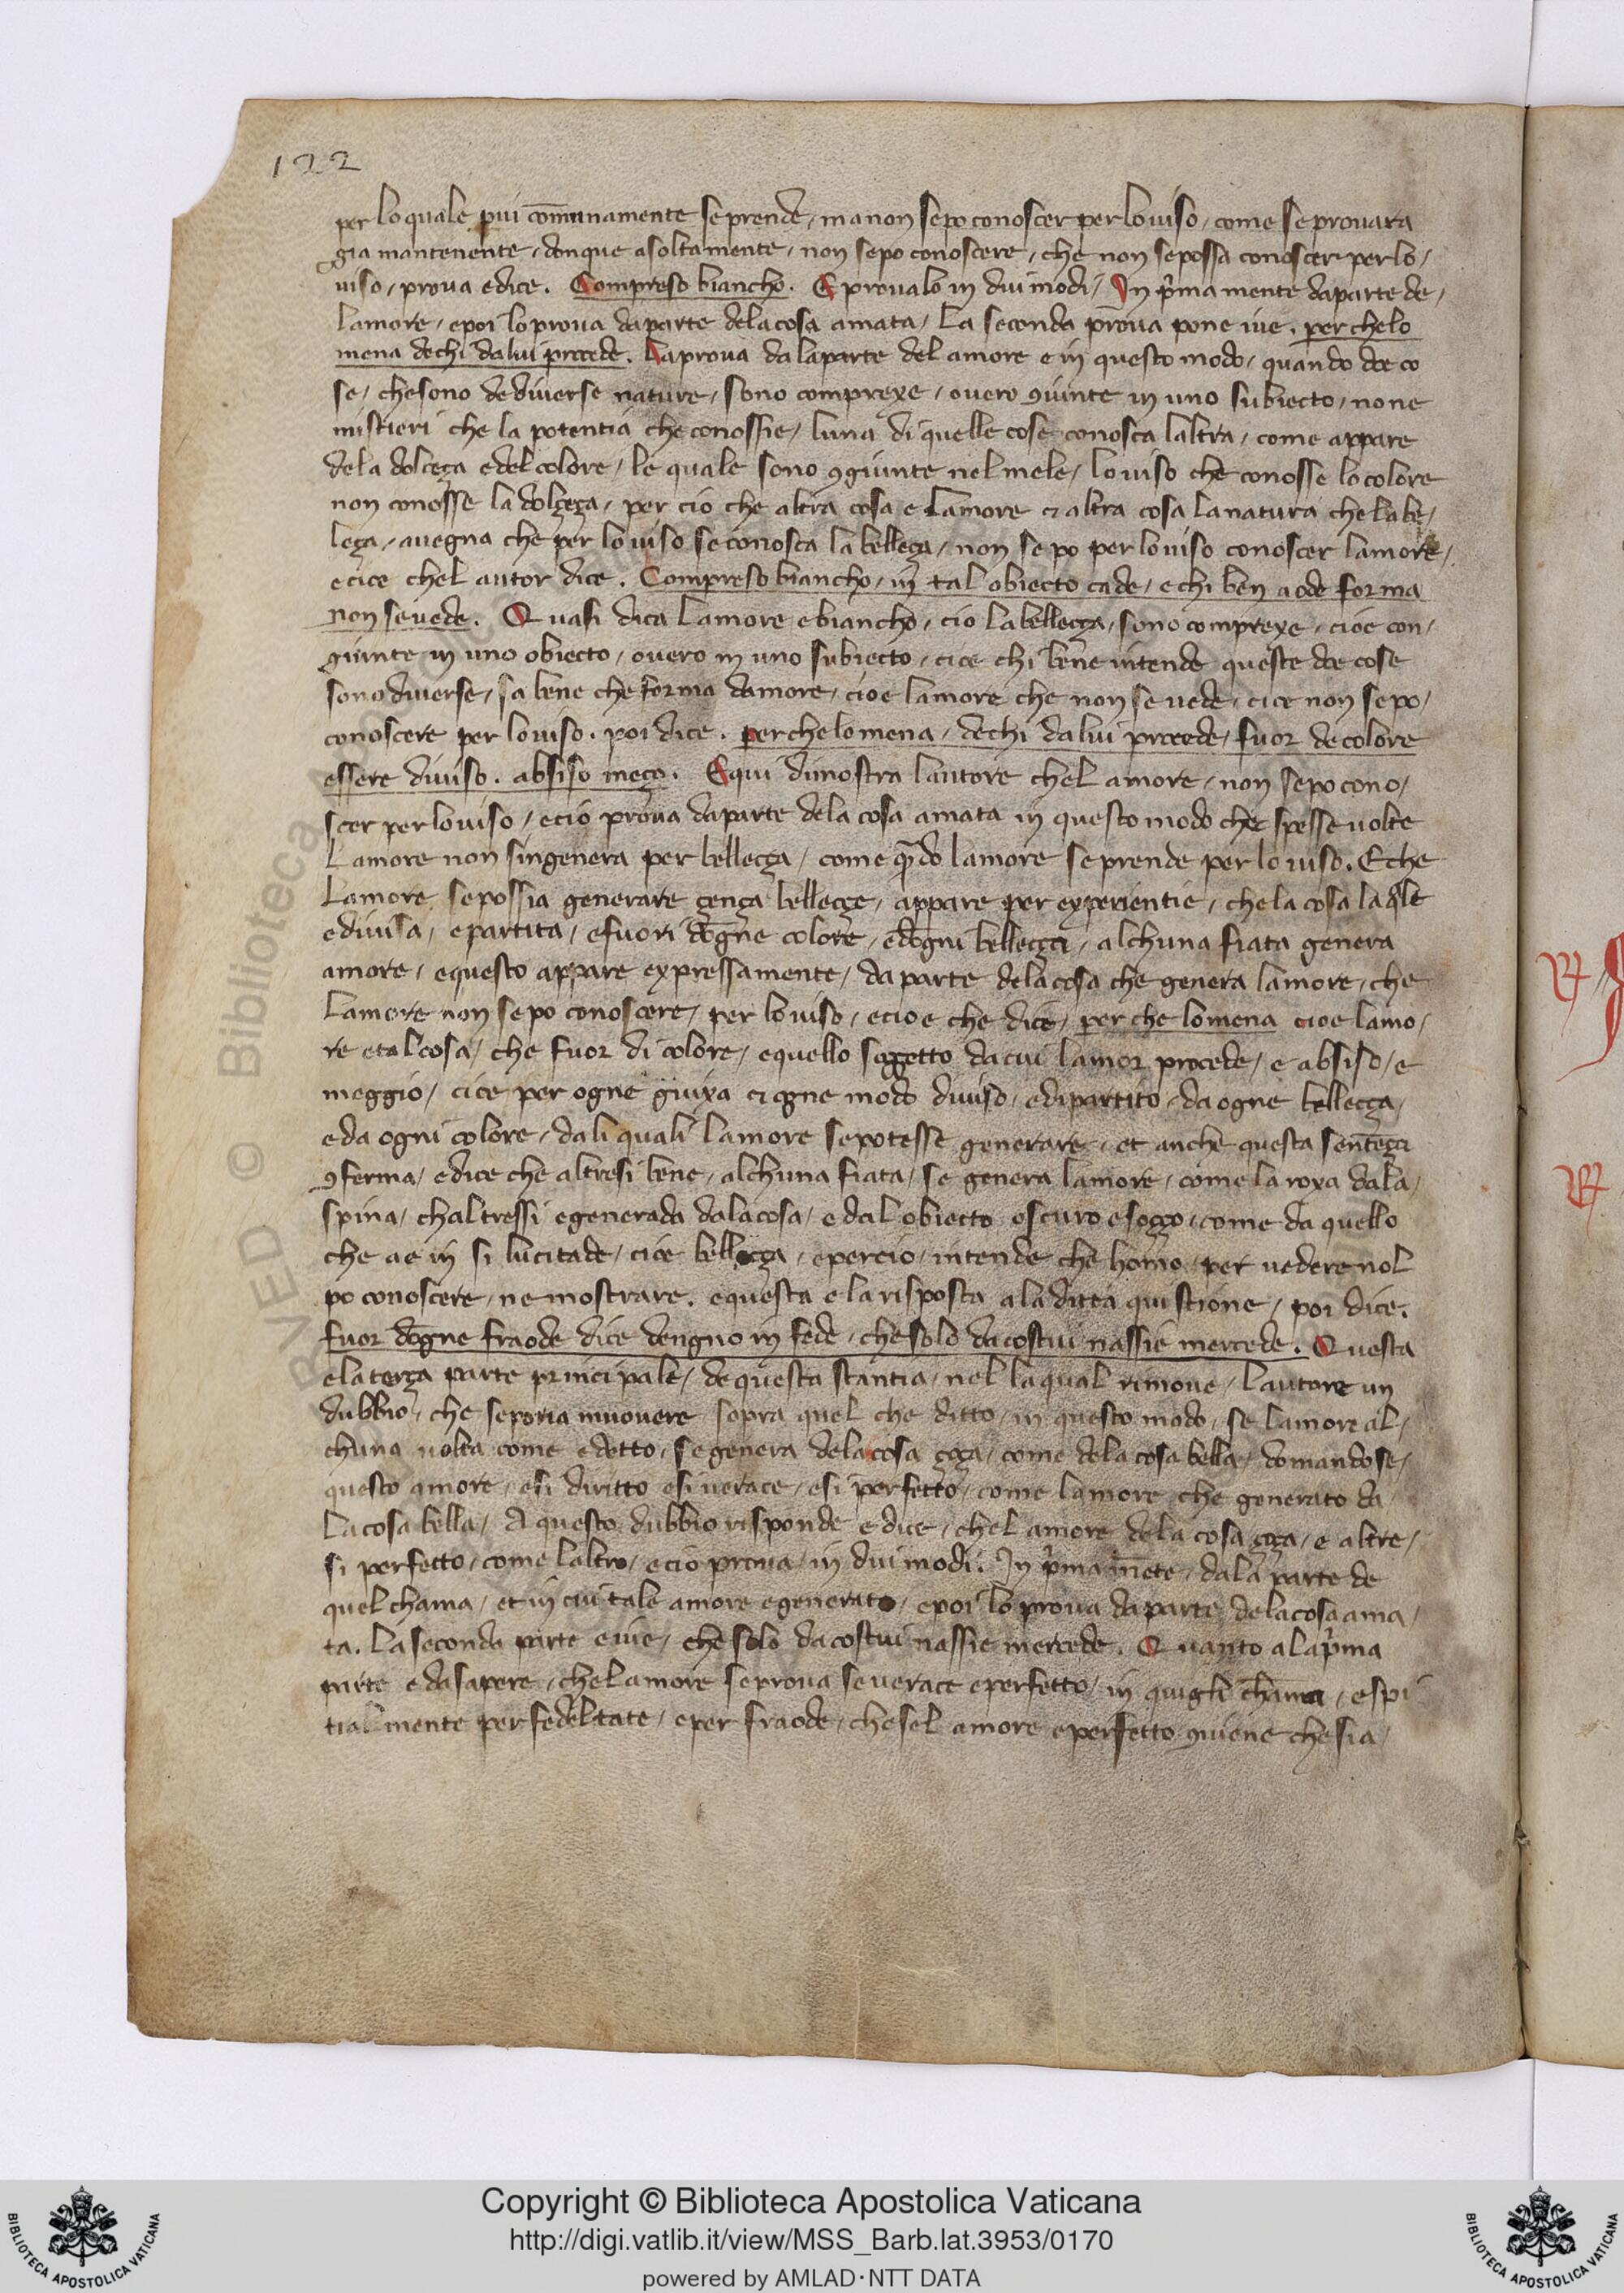 122
per lo quale pui com̄unamente se prende / ma non se po conoscer per lo viso / come se provara
gia mantenente / donque asoltamente / non se po conoscere / che non se possa conoscer per lo /
viso / prova e dice . Compreso biancho . E provalo in dui modi / In p̄ma mente da parte de /
lamore / e poi lo prova da parte dela cosa amata / La seconda prova pone ive . per che lo
mena de chi da lui procede . La prova da la parte del amore e in questo modo / quando doe co
se / che sono de diverse nature / sono comprexe / overo ꝯiunte in uno subiecto / non e
mistieri che la potentia che conossie / luna di quelle cose conosca laltra / come appare
de la dolceça e del colore / le quale sono ꝯgiunte nel mele / lo viso che conosse lo colore
non conosse la dolçeça / per cio che altra cosa e lamore & altra cosa la natura che la be /
leça / avegna che per lo viso se conosca la belleça / non se po per lo viso conoscer lamore /
e cioe chel autor dice . Compreso biancho / in tal obiecto cade / e chi ben aode forma
non se vede . Quasi dica lamore e biancho / cio la bellecça / sono comprexe / cioe con /
giunte in uno obiecto / overo in uno subiecto / cioe chi bene intende queste doe cose
sono diverse / sa bene che forma damore / cioe lamore che non se vede / cioe non se po /
conoscere per lo viso . poi dice . per che lo mena / de chi da lui procede / fuor de colore
essere diviso . absiso meço . E qui dimostra lautore chel amore / non se po cono /
scer per lo viso / e cio prova da parte de la cosa amata in questo modo che spesse volte
Lamore non singenera per bellecça / come q̄ndo lamore se prende per lo viso . E che
Lamore se possia generare çença bellecçe / appare per experientie / che la cosa la q̄le
e divisa / e partita / e fuori dōgne colore / e dōgni bellecça / alchuna fiata genera
amore / e questo appare expressamente / da parte de la cosa che genera lamore / che
Lamore non se po conoscere / per lo viso / e cio e che dice / per che lo mena cioe lamo /
re e tal cosa / che fuor di colore / e quello soggetto da cui lamor procede / e absiso / e
meggio / cioe per ogne guixa & ogne modo diviso / e dipartito / da ogne bellecça /
e da ogni colore / da li quali lamore se potesse generare / et anche questa sentēça
ꝯferma / e dice che altresi bene / alchuna fiata / se genera lamore / come la roxa da la /
spina / chaltressi e generada da la cosa / e dal obiecto oscuro e soçço / come da quello
che ae in si lucitade / cioe bellecça / e percio / intende che homo / per vedere nol
po conoscere / ne mostrare . e questa e la risposta a la ditta quistione / poi dice .
fuor dōgne fraode dice dengno in fede / che solo da costui nassie mercede . Questa
e la terça parte principale / de questa stantia / nel la qual rimove / lautore un
dubbio / che se poria muovere sopra quel che ditto / in questo modo / se lamore al /
chuna volta come e detto / se genera de la cosa çoça / come de la cosa bella / domandose /
questo amore / e si diritto e si verace / e si perfetto / come lamore che generato da
La cosa bella / A questo dubbio risponde e dice / chel amore de la cosa çoça / e altre /
si perfetto / come laltro / e cio prova / in dui modi . In p̄ma mēte / da la parte de
quel chama / et in cui tale amore e generato / e poi lo prova da parte de la cosa ama /
ta . La seconda parte e ive / che solo da costui nassie mercede . Quanto a la p̄ma
parte e da sapere / chel amore se prova se verace e perfetto / in quigli chama / e spi
tialmente per fedeltate / e per fraode / che sel amore e perfetto ꝯviene che sia /
© Biblioteca
RVED
Copyright © Biblioteca Apostolica Vaticana
http://digi.vatlib.it/view/MSS_Barb.lat.3953/0170
powered by AMLAD·NTT DATA
BIBLIOTECA APOSTOLICA VATICANA
BIBLIOTECA APOSTOLICA VATICANA